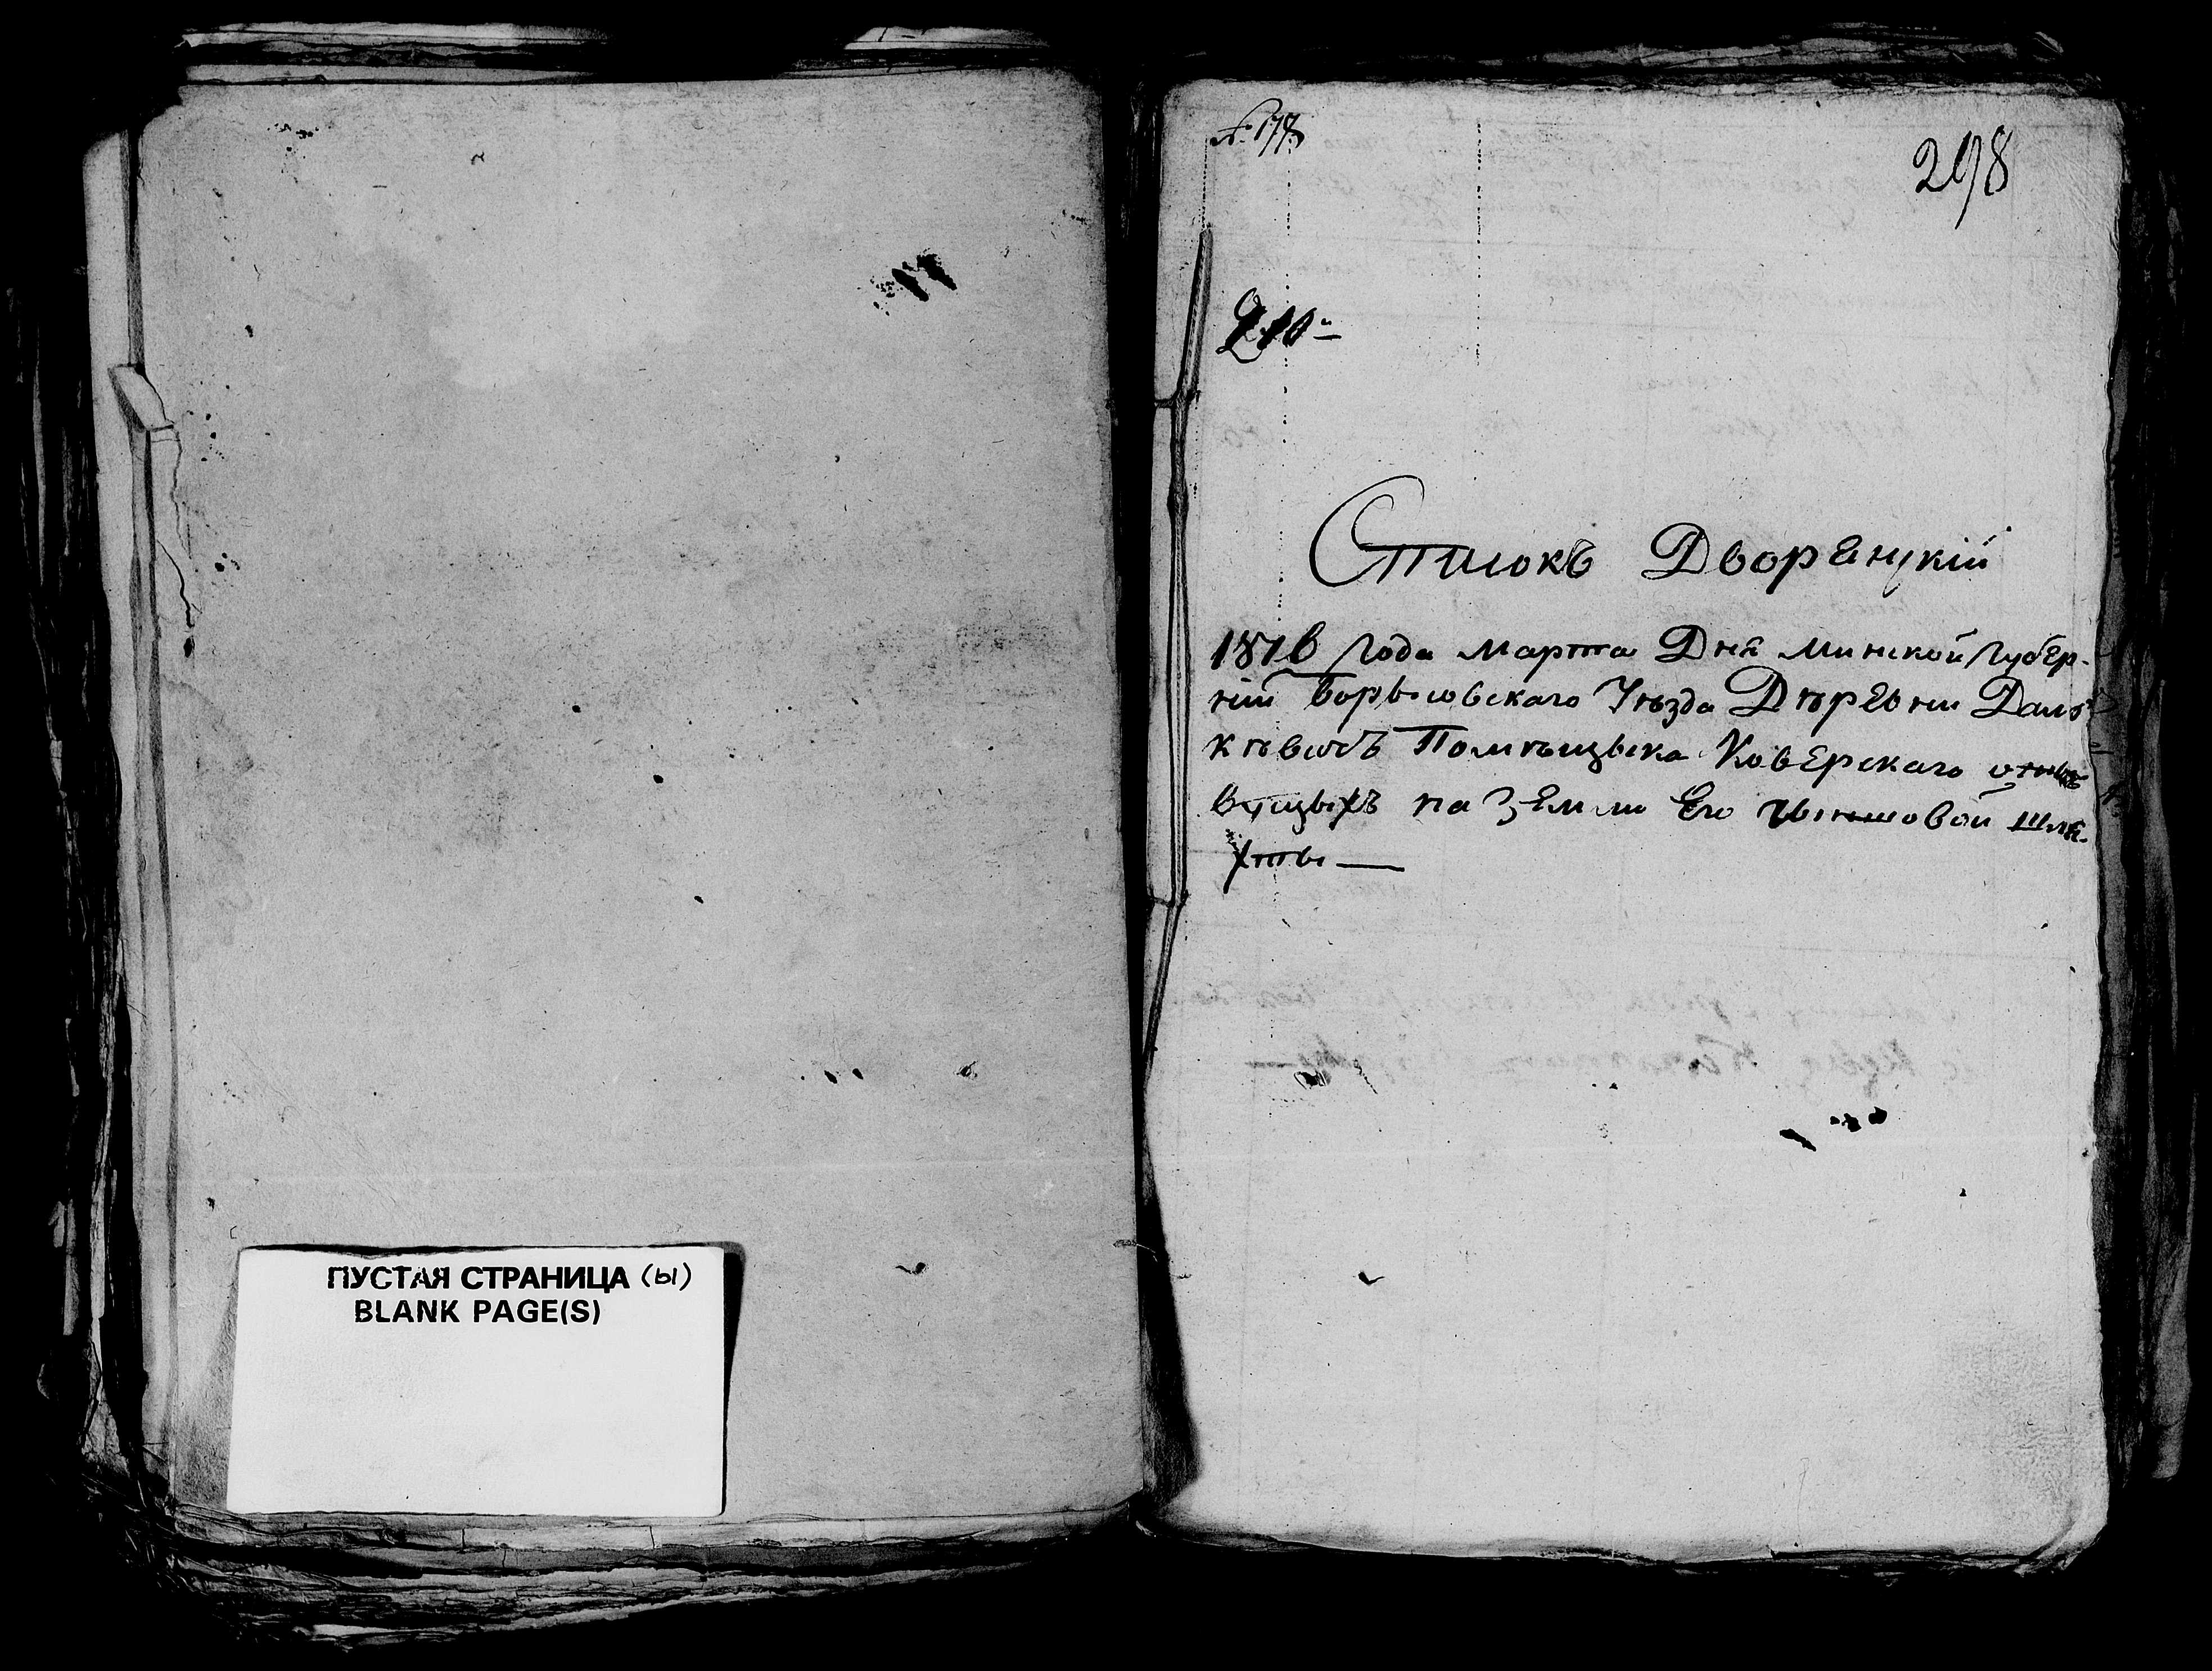 ПУСТАЯ СТРАНИЦА (ы)
BLANK PAGE(S)
№ 178
298
210
Списокъ Дворянский
1816 Года Марта Дня Минской Губер-
ніи Борысовскаго Уѣзда Дѣревни
Помѣщыка Коверскаго
на Земли Его Чыншовой Шля-
хты —